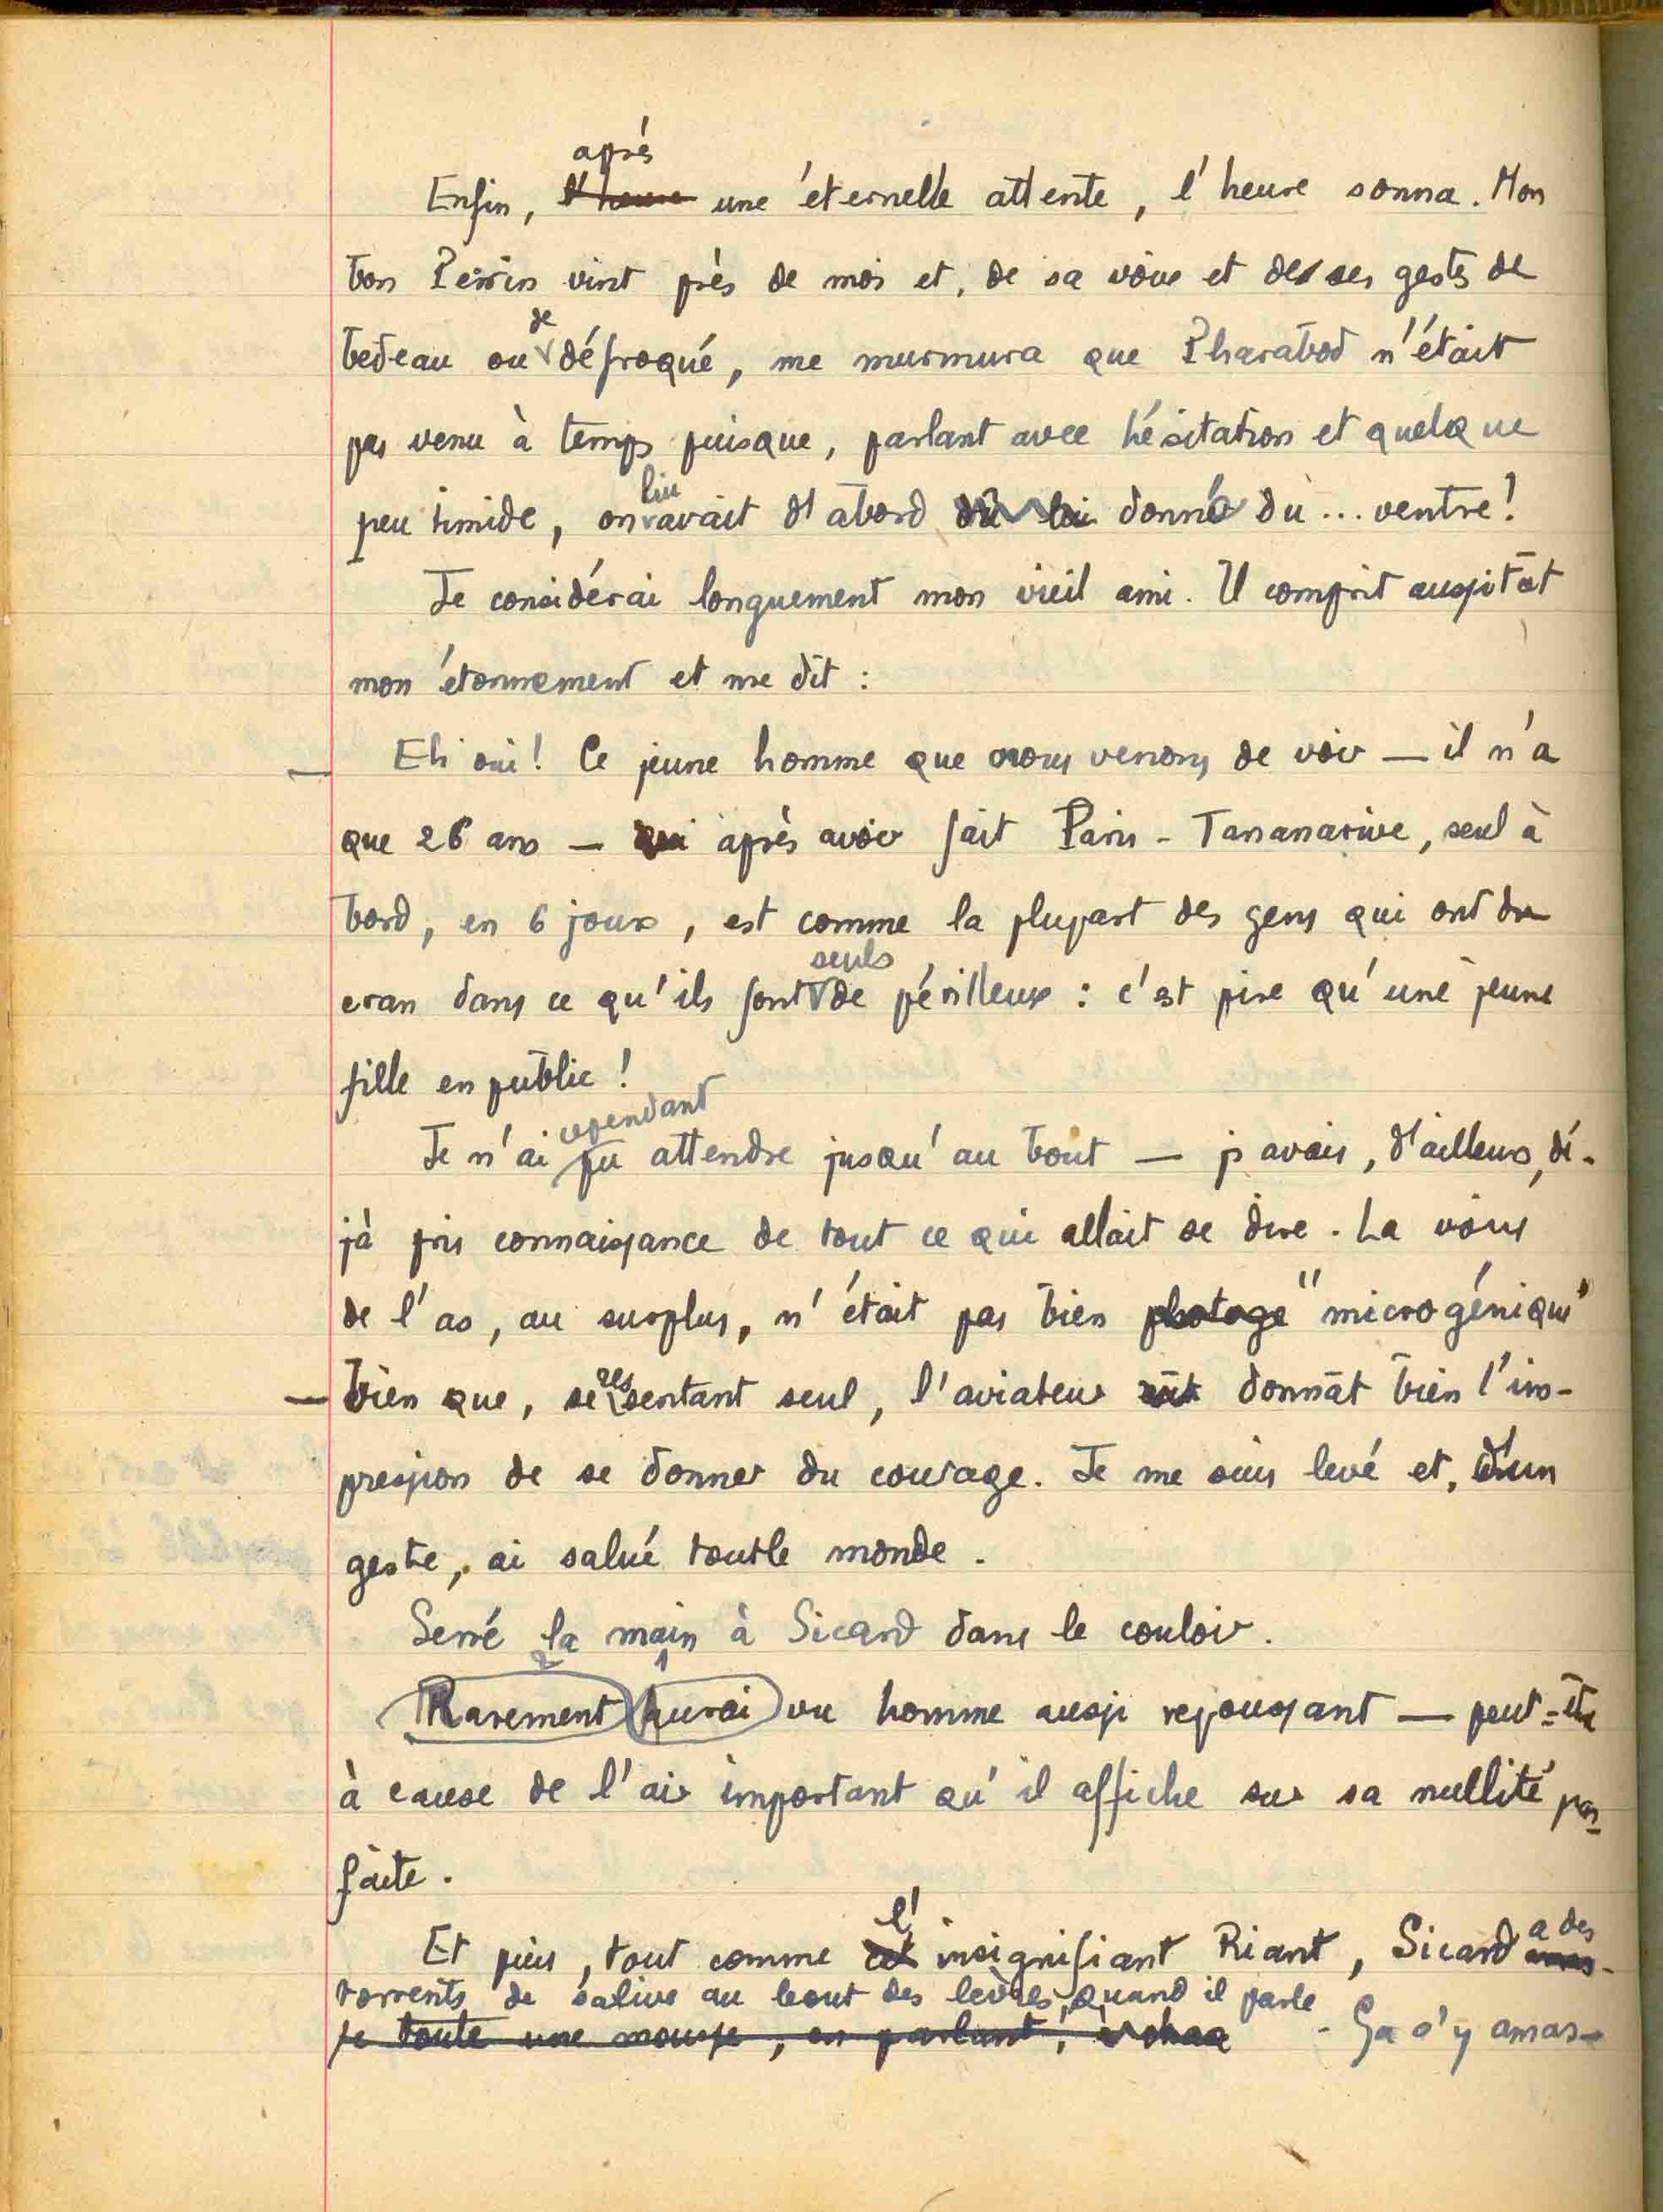 après
Enfin, l'heure une éternelle attente, l'heure sonna. Mon
bon Perrin vint près de moi et, de sa voix et de ses gestes de
de
bedeau ou défroqué, me murmura que Pharabod n'était
pas venu à temps puisque, parlant avec hésitation et quelque
lui
peu timide, on avait d'abord dû lui donné du... ventre!
Je considérai longuement mon vieil ami. Il comprit aussitôt
mon étonnement et me dit :
— Eh oui! Ce jeune homme que nous venons de voir — il n'a
que 26 ans — qui après avoir fait Paris - Tananarive, seul à
bord, en 6 jours, est comme la plupart des gens qui ont du
seuls
cran dans ce qu'ils font de périlleux : c'est pire qu'une jeune
fille en public!
cependant
Je n'ai pu attendre jusqu'au bout — j'avais, d'ailleurs, dé-
jà pris connaissance de tout ce qui allait se dire. La voix
de l'as, au surplus, n'était pas bien photogé "microgénique"
res
— bien que, se sentant seul, l'aviateur eût donnât bien l'im-
pression de se donner du courage. Je me suis levé et, d'un
geste, ai salué tout le monde.
Serré la main à Sicard dans le couloir.
2 1
Rarement aurai vu homme aussi repoussant — peut-être
à cause de l'air important qu'il affiche sur sa nullité par-
faite.
l' a des
Et puis, tout comme cet insignifiant Riant, Sicard amas-
torrents de salive au bout des lèvres, quand il parle
se toute une mousse, en parlant, à chaq - Ça s'y amas-